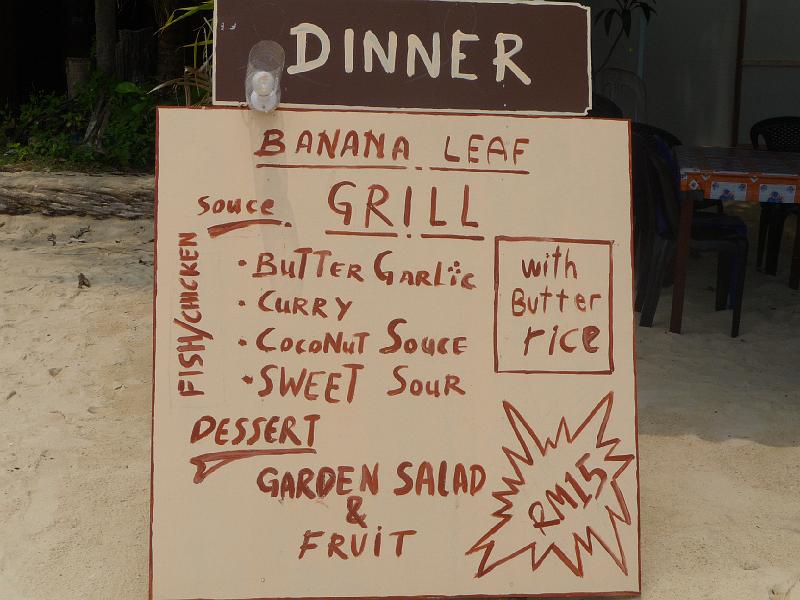 DINNER
BANANA LEAF
GRILL
Souce
FISH/CHICKEN
• BUTTER GARLiC
• CURRY
• COCONUT SOUCE
• SWEET SOUR
with
Butter
rice
DESSERT
GARDEN SALAD
&
FRUiT
RM15